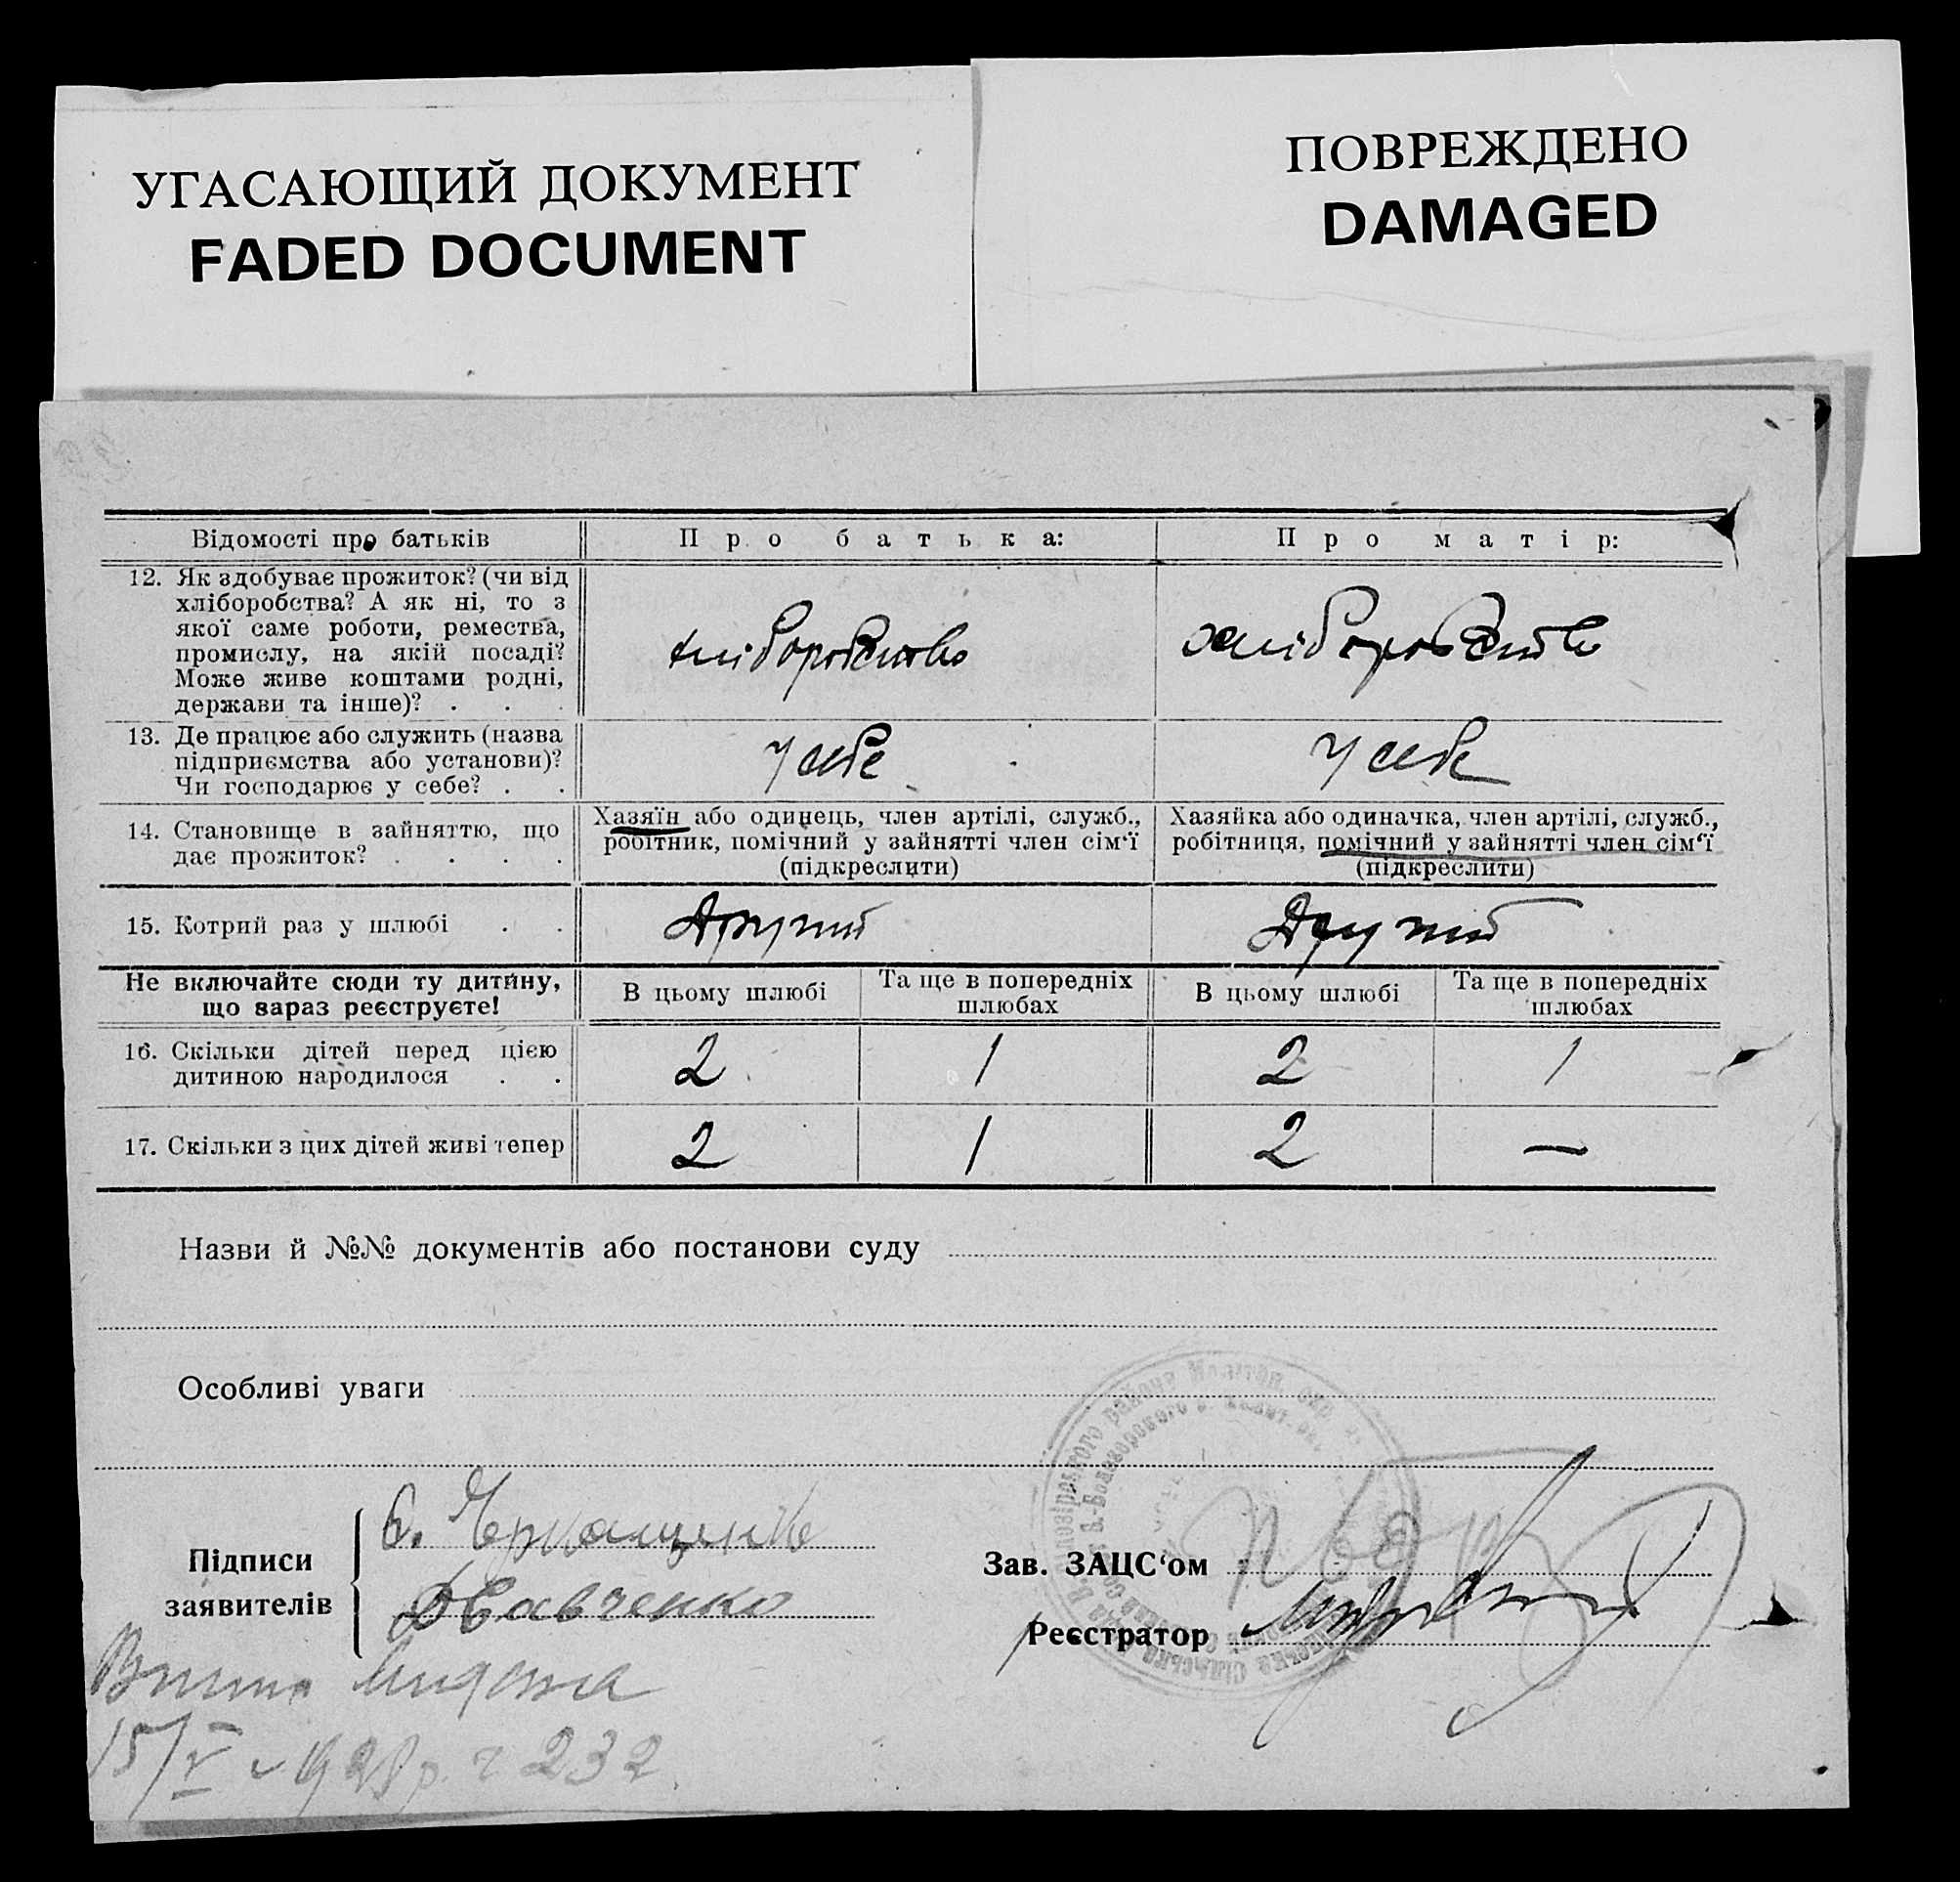 УГАСАЮЩИЙ ДОКУМЕНТ
FADED DOCUMENT
ПОВРЕЖДЕНО
DAMAGED
Відомості про батьків
Про батька:
Про матір:
12. Як здобуває прожиток? (чи від
хліборобства? А як ні, то з
якої саме роботи, ремества,
промислу, на якій посаді?
Може живе коштами родні,
держави та інше)? . . .
хліборобство
хліборобство
13. Де працює або служить (назва
підприємства або установи)?
Чи господарює у себе? . .
У себе
У себе
14. Становище в зайняттю, що
дає прожиток? . . . .
Хазяїн або одинець, член артілі, служб.,
робітник, помічний у зайнятті член сім‘ї
(підкреслити)
Хазяйка або одиначка, член артілі, служб.,
робітниця, помічний у зайнятті член сім‘ї
(підкреслити)
15. Котрий раз у шлюбі . .
Другий
Другий
Не включайте сюди ту дитину,
що зараз реєструєте!
В цьому шлюбі
Та ще в попередніх
шлюбах
В цьому шлюбі
Та ще в попередніх
шлюбах
16. Скільки дітей перед цією
дитиною народилося . .
2
1
2
1
17. Скільки з цих дітей живі тепер
2
1
2
—
Назви й №№ документів або постанови суду
Особливі уваги
Підписи
заявителів
Д Савченко
Зав. ЗАЦС‘ом
Реєстратор
15/V 1928 р. 232